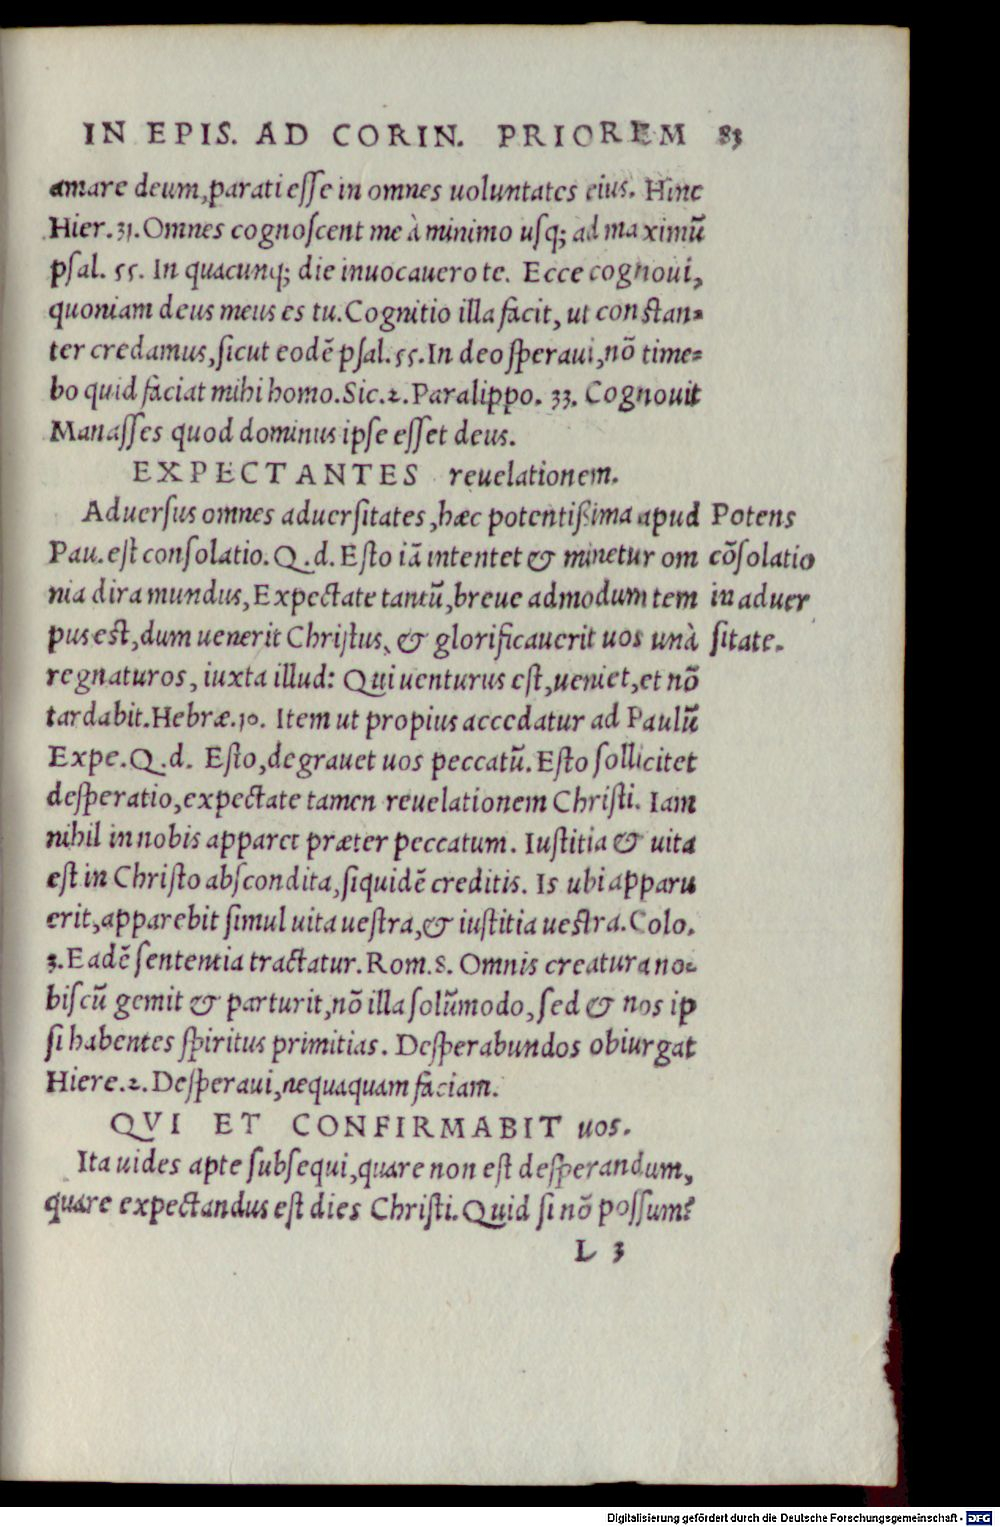 IN EPIS. AD CORIN. PRIOREM 83
amare deum, parati esse in omnes uoluntates eius. Hinc
Hier. 31. Omnes cognoscent me à minimo usq; ad maximũ
psal. 55. In quacunq; die inuocauero te. Ecce cognoui,
quoniam deus meus es tu. Cognitio illa facit, ut constan-
ter credamus, sicut eodẽ psal. 55. In deo speraui, nõ time-
bo quid faciat mihi homo. Sic. 2. Paralippo. 33. Cognouit
Manasses quod dominus ipse esset deus.
EXPECTANTES reuelationem.
Aduersus omnes aduersitates, hæc potentißima apud
Pau. est consolatio. Q. d. Esto iã intentet & minetur om
nia dira mundus, Expectate tantũ, breue admodum tem
pus est, dum uenerit Christus, & glorificauerit uos unà
regnaturos, iuxta illud: Qui uenturus est, ueniet, et nõ
tardabit. Hebræ. 10. Item ut propius accedatur ad Paulũ
Expe. Q. d. Esto, degrauet uos peccatũ. Esto sollicitet
desperatio, expectate tamen reuelationem Christi. Iam
nihil in nobis apparet præter peccatum. Iustitia & uita
est in Christo abscondita, siquidẽ creditis. Is ubi apparu
erit, apparebit simul uita uestra, & iustitia uestra. Colo.
3. Eadẽ sententia tractatur. Rom. 8. Omnis creatura no-
biscũ gemit & parturit, nõ illa solũmodo, sed & nos ip
si habentes spiritus primitias. Desperabundos obiurgat
Hiere. 2. Desperaui, nequaquam faciam.
QVI ET CONFIRMABIT uos.
Ita uides apte subsequi, quare non est desperandum,
quare expectandus est dies Christi. Quid si nõ possum?
L 3
Potens
cõsolatio
in aduer
sitate.
Digitalisierung gefördert durch die Deutsche Forschungsgemeinschaft - DFG